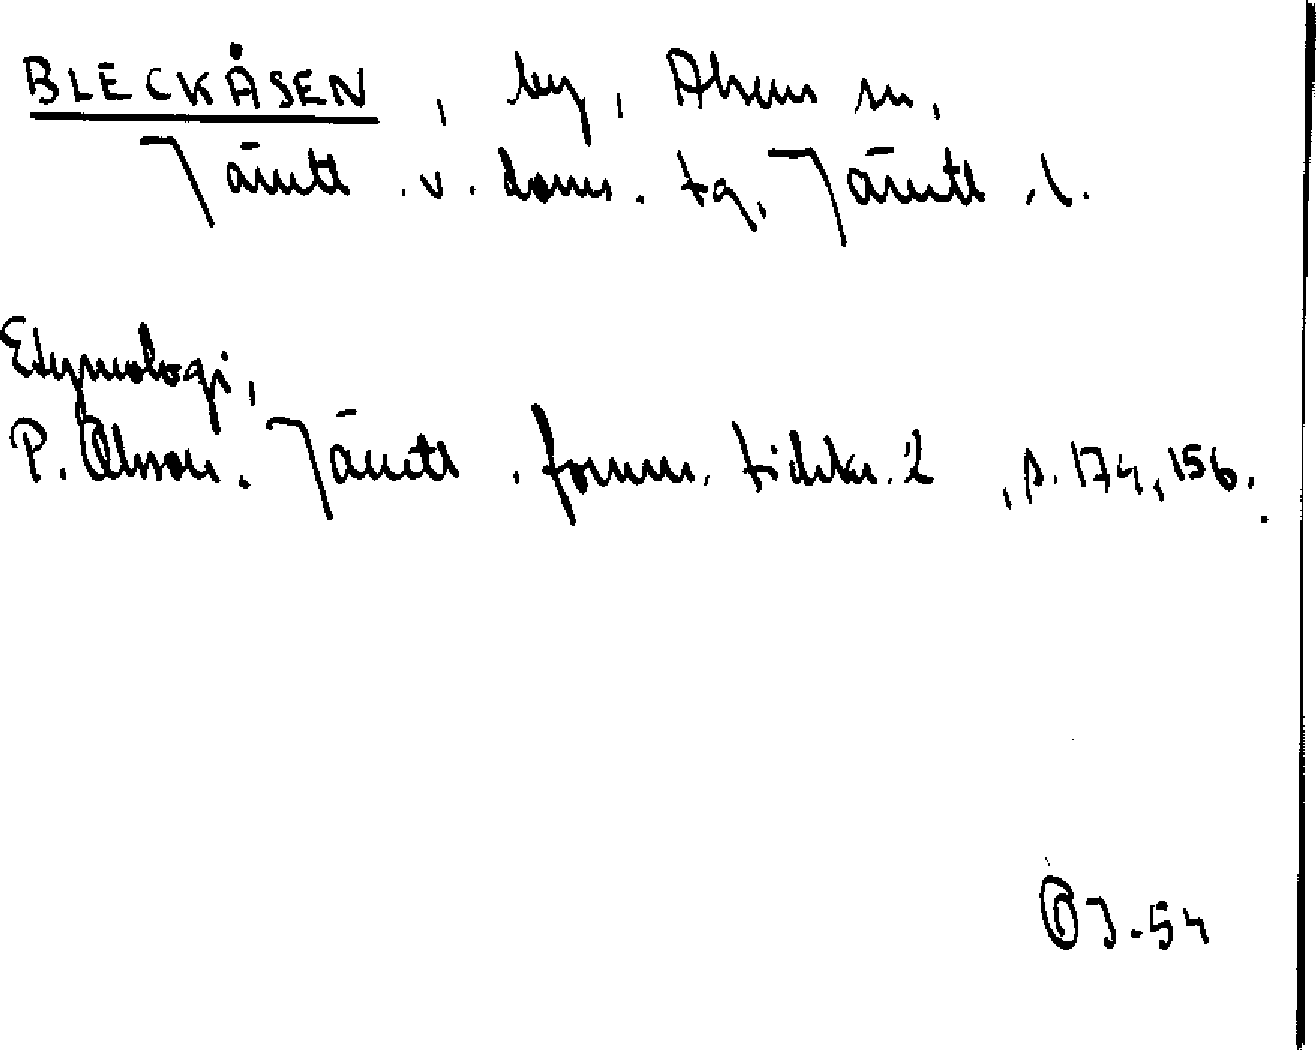 BLECKÅSEN, by, Alsens sn,
Jämtl. v. doms. tg, Jämtl. l.
Etymologi,
P. Olsson. Jämtl. fornm. tidskr. 2, s. 174, 156.
ÖJ-54